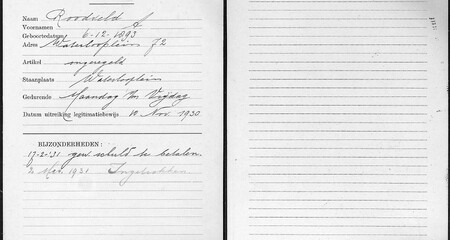 Naam Roodveld A.
Voornamen
Geboortedatum 6-12-1893
Adres Waterlooplein 72
Artikel ongeregeld
Staanplaats Waterlooplein
Gedurende Maandag t/m Vrijdag
Datum uitreiking legitimatiebewijs 10 Nov. 1930
BIJZONDERHEDEN:
17-2-31 geen schuld te betalen.
2 Mrt. 1931 Ingetrokken